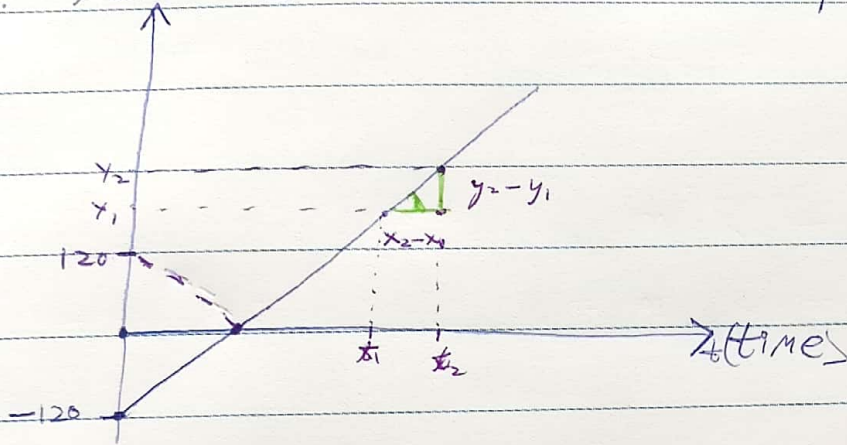 Y₂
y₂-y₁
Y₁
x₂-x₁
120
t₁
t₂
t(time)
-120